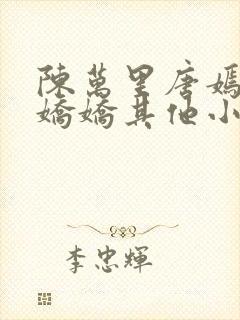 陳萬里唐嫣
嬌嬌其他小
李忠輝